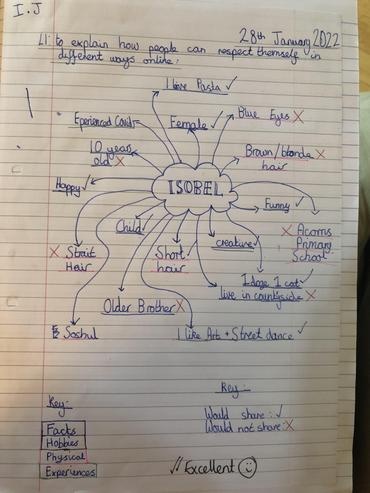 I.J
28th January 2022
LI: to explain how people can respect themself in
different ways online.
I love Pasta ✓
Experienced Covid
Female ✓
Blue Eyes X
10 years
old X
Brown/blonde X
hair
Happy ✓
ISOBEL
Funny ✓
Child ✓
X Strait
Hair
Short ✓
hair
creative ✓
X Acorns
Primary
School
1 dog 1 cat ✓
live in countryside X
Older Brother X
Soshul
I like Art + Street dance ✓
Key:
Facts
Hobbies
Physical
Experiences
Key:
Would share: ✓
Would not share: X
✓✓ Excellent ☺